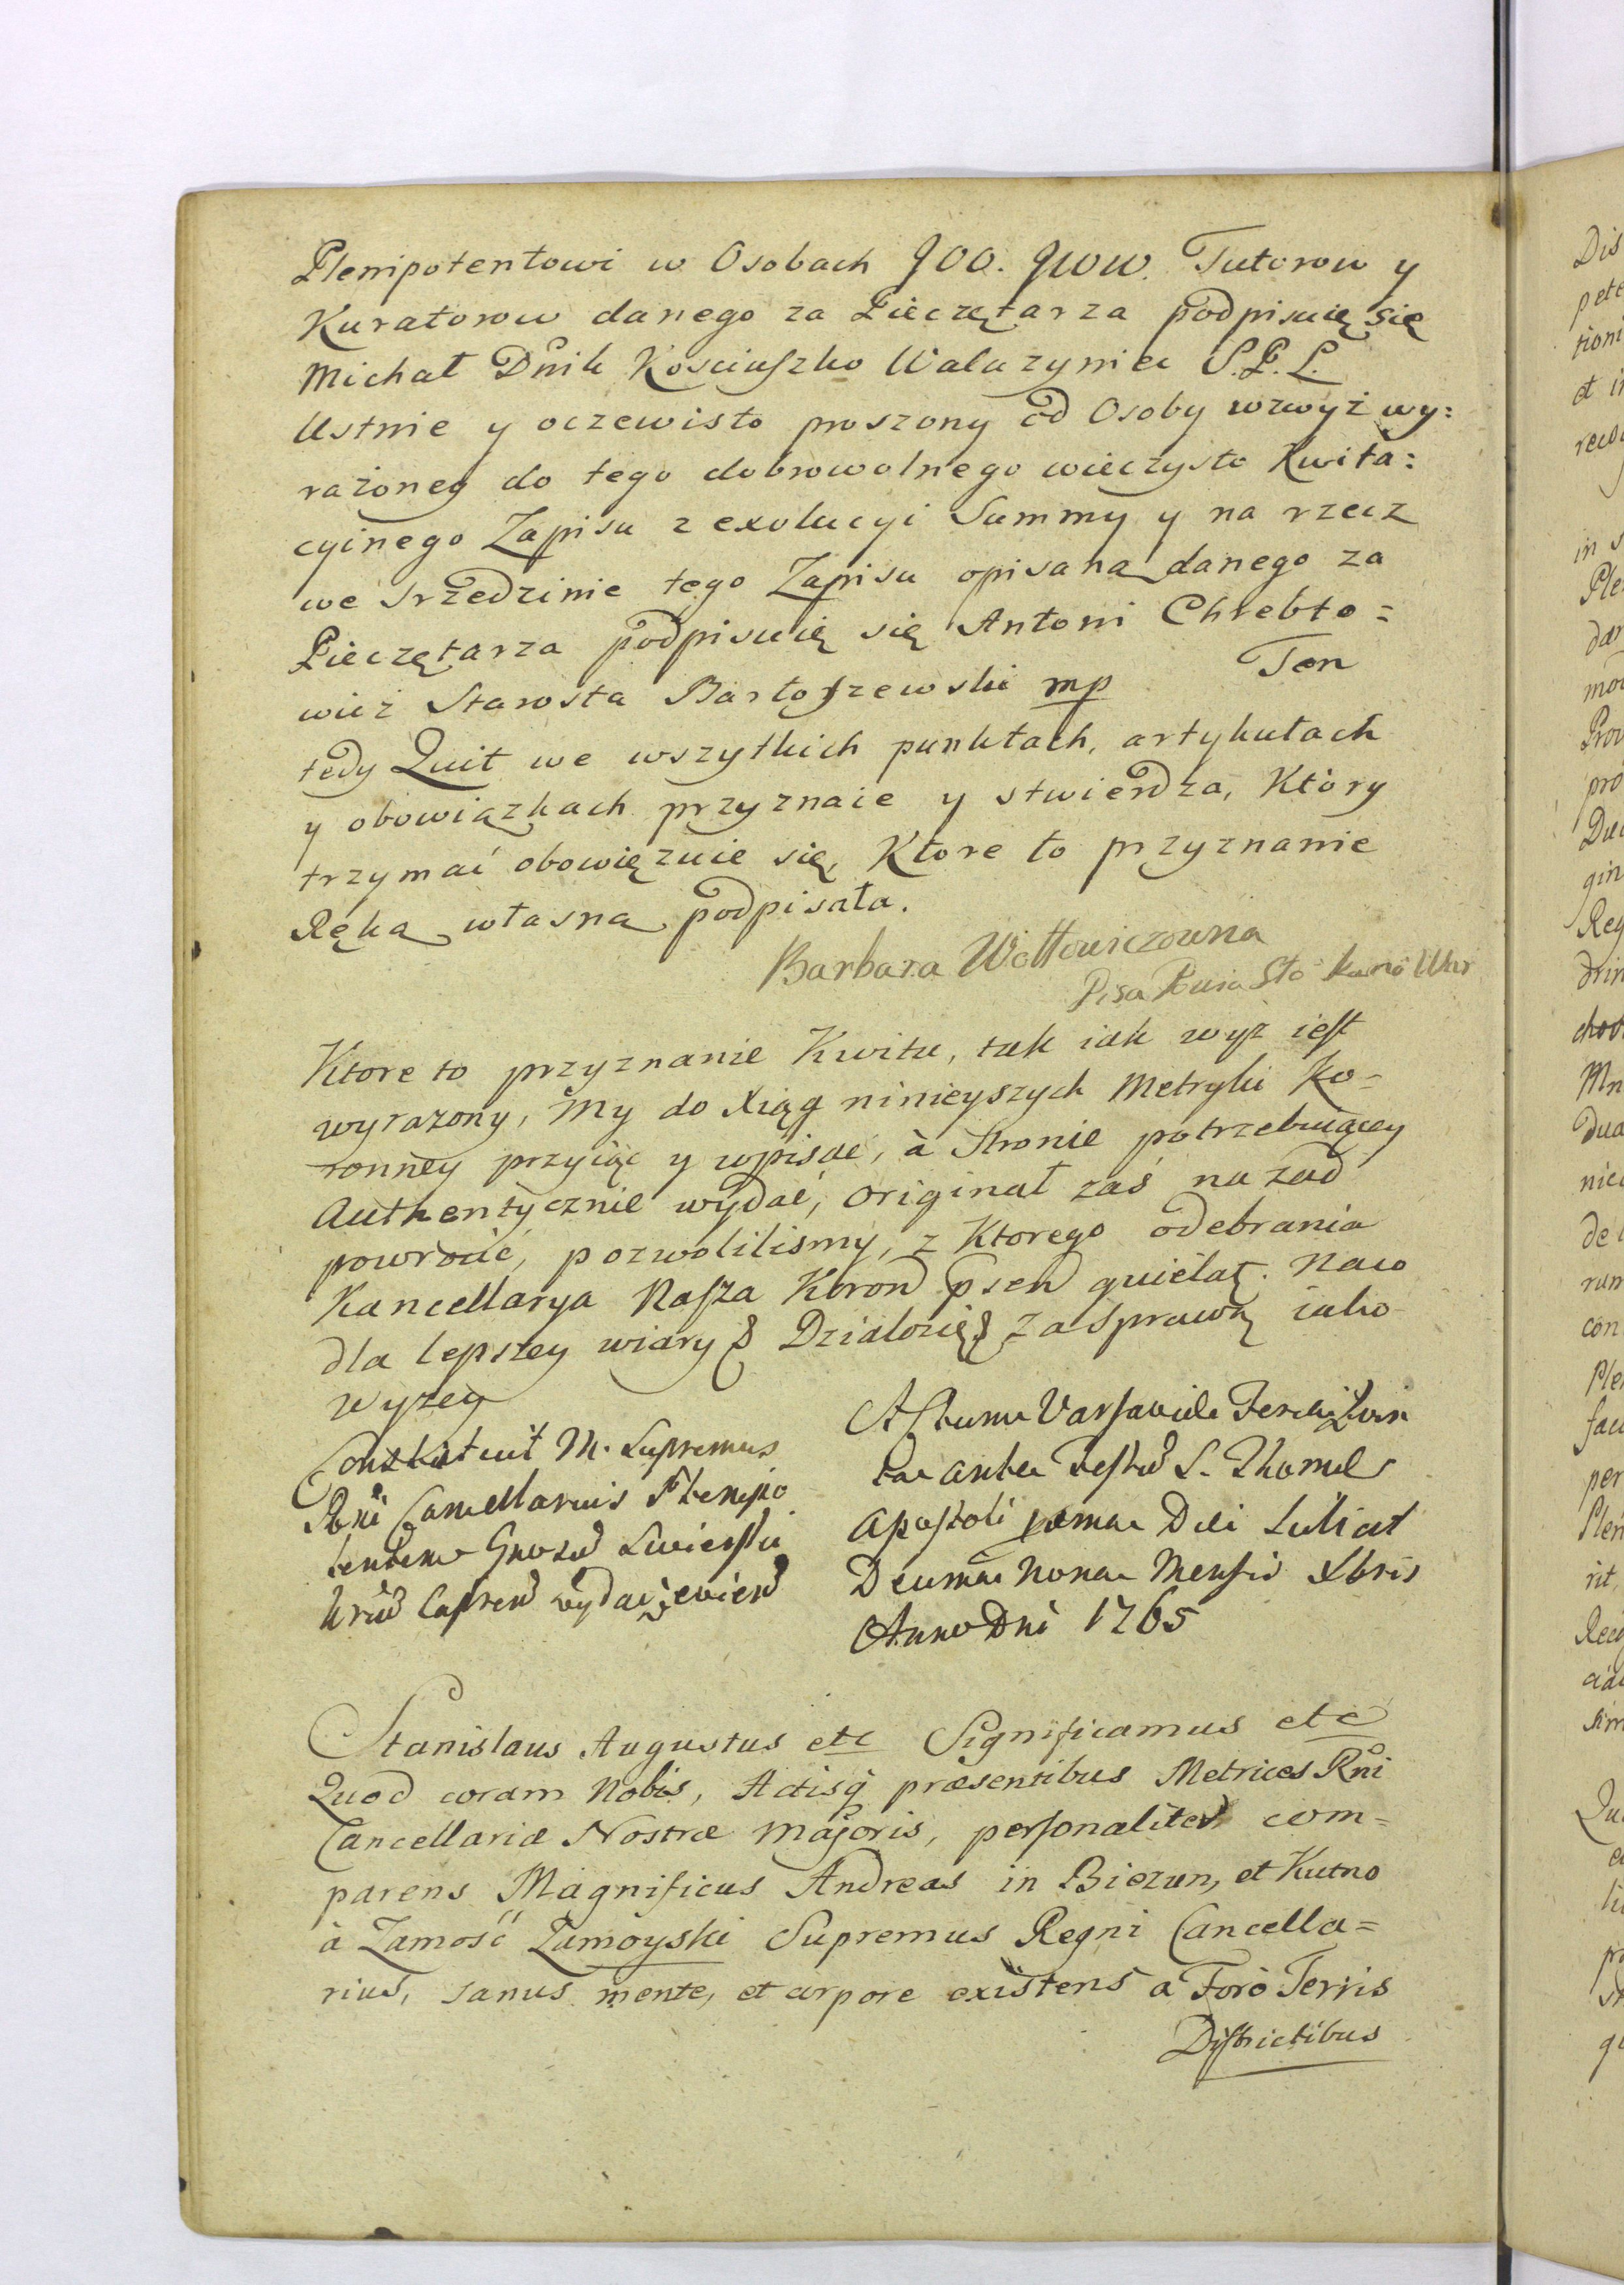 Plenipotentowi w Osobach JOO. JWOW. Tutorow y
Kuratorow danego za Pieczętarza podpisuię się
Michał Dnik Kosciuszko Waluzyniec S.P.L.
Ustnie y oczewisto proszony od Osoby wzwyż wy:
rażoney do tego dobrowolnego wieczysto Kwita:
cyinego Zapisu z exolucyi Summy y na rzecz
we srzedzinie tego Zapisu opisaną danego za
Pieczętarza podpisuię się Antoni Chrebto=
wicz Starosta Bartoszewski mp Ten
tedy Quit we wszytkich punktach, artykułach
y obowiązkach przyznaie y stwierdza, Który
trzymać obowięzuie się, Ktore to przyznanie
Ręką własną podpisała.
Barbara Wołłowiczowna
Pisa
Ktore to przyznanie Kwitu, tak iak wyż iest
wyrazony, My do Xiąg ninieyszych Metryki Ko=
ronney przyiąć y wpisać, à Stronie potrzebuiącey
Authentycznie wydać, originał zaś nazad
powrocić, pozwolilismy, z Ktorego odebrania
Kancellarya Nasza Koron psen quietat. Naco
dla lepszey wiary & Działosię & Za Sprawą iako
wyzey
Constituit M. Supremus
Rni Cancellarius Plenipo
tentem Gnosum Swierski
wydać
Actum Varsaviae Feria Quin
ta ante Festum S. Thomae
Apostoli proxima Die Scilicet
Decima Nona Mensis Xbris
Anno Dni 1765
Stanislaus Augustus etc Significamus etc
Quod coram Nobis, Actisq præsentibus Metrices Rni
Cancellariæ Nostræ Majoris, personaliter com=
parens Magnificus Andreas in Biezun, et Kutno
à Zamość Zamoyski Supremus Regni Cancella=
rius, sanus mente, et corpore existens a Foro Terris
Districtibus